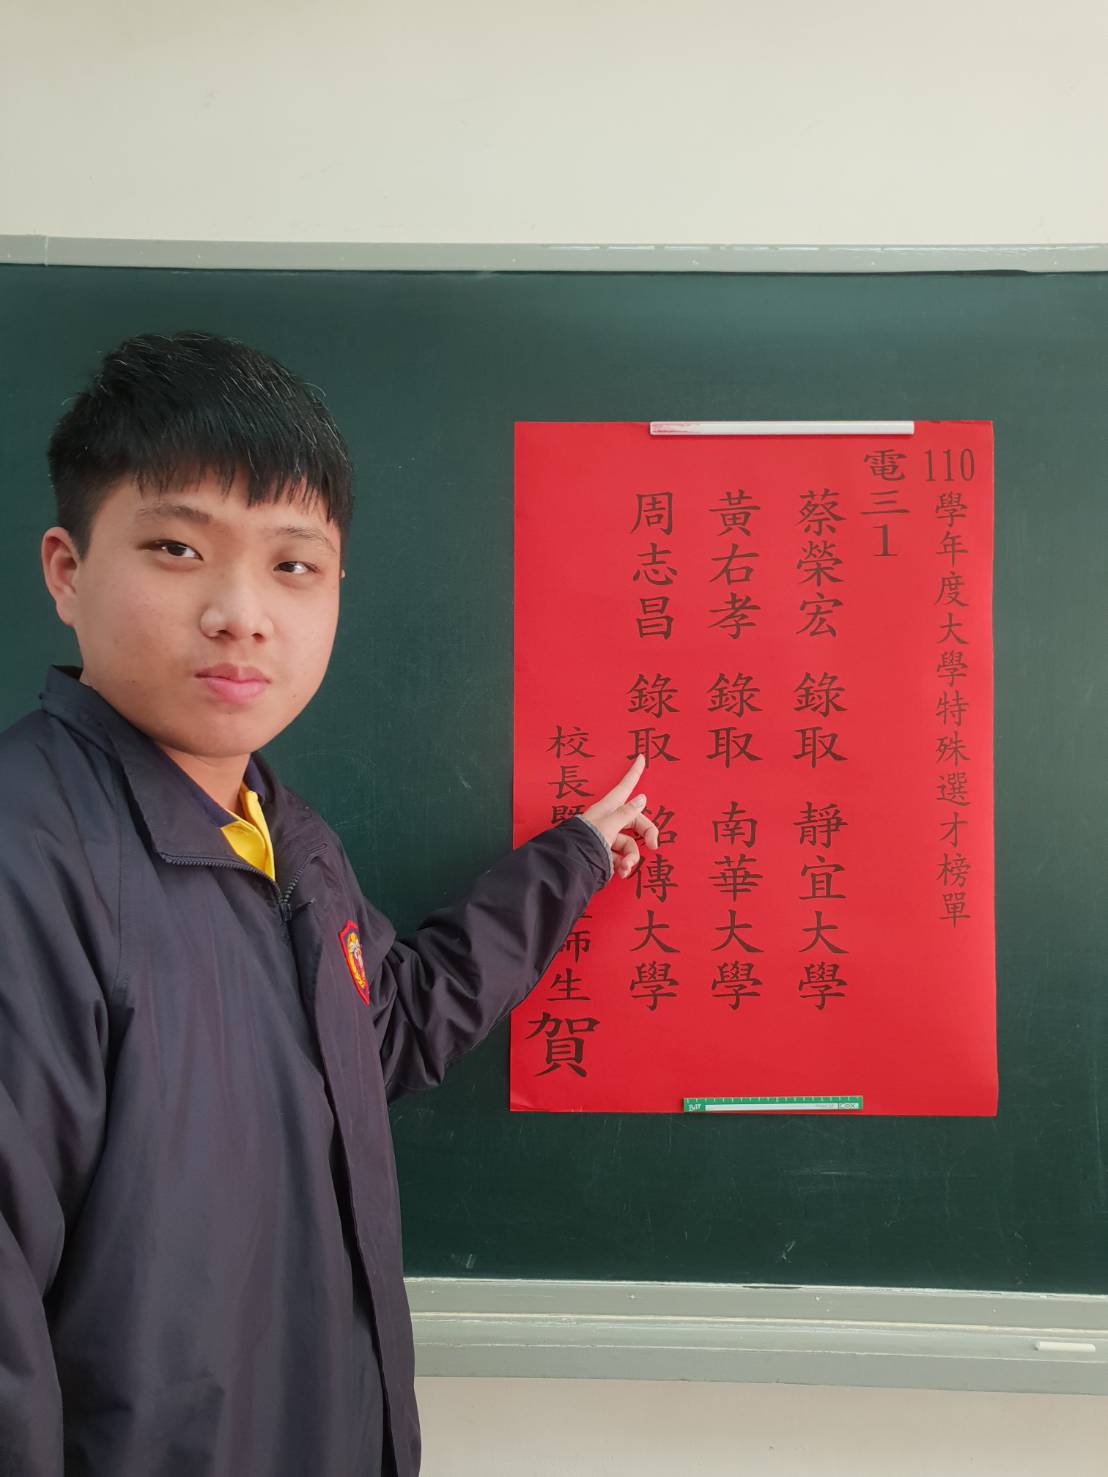 110學年度大學特殊選才榜單
電三1
蔡榮宏 錄取 靜宜大學
黃右孝 錄取 南華大學
周志昌 錄取 銘傳大學
校長暨 師生賀